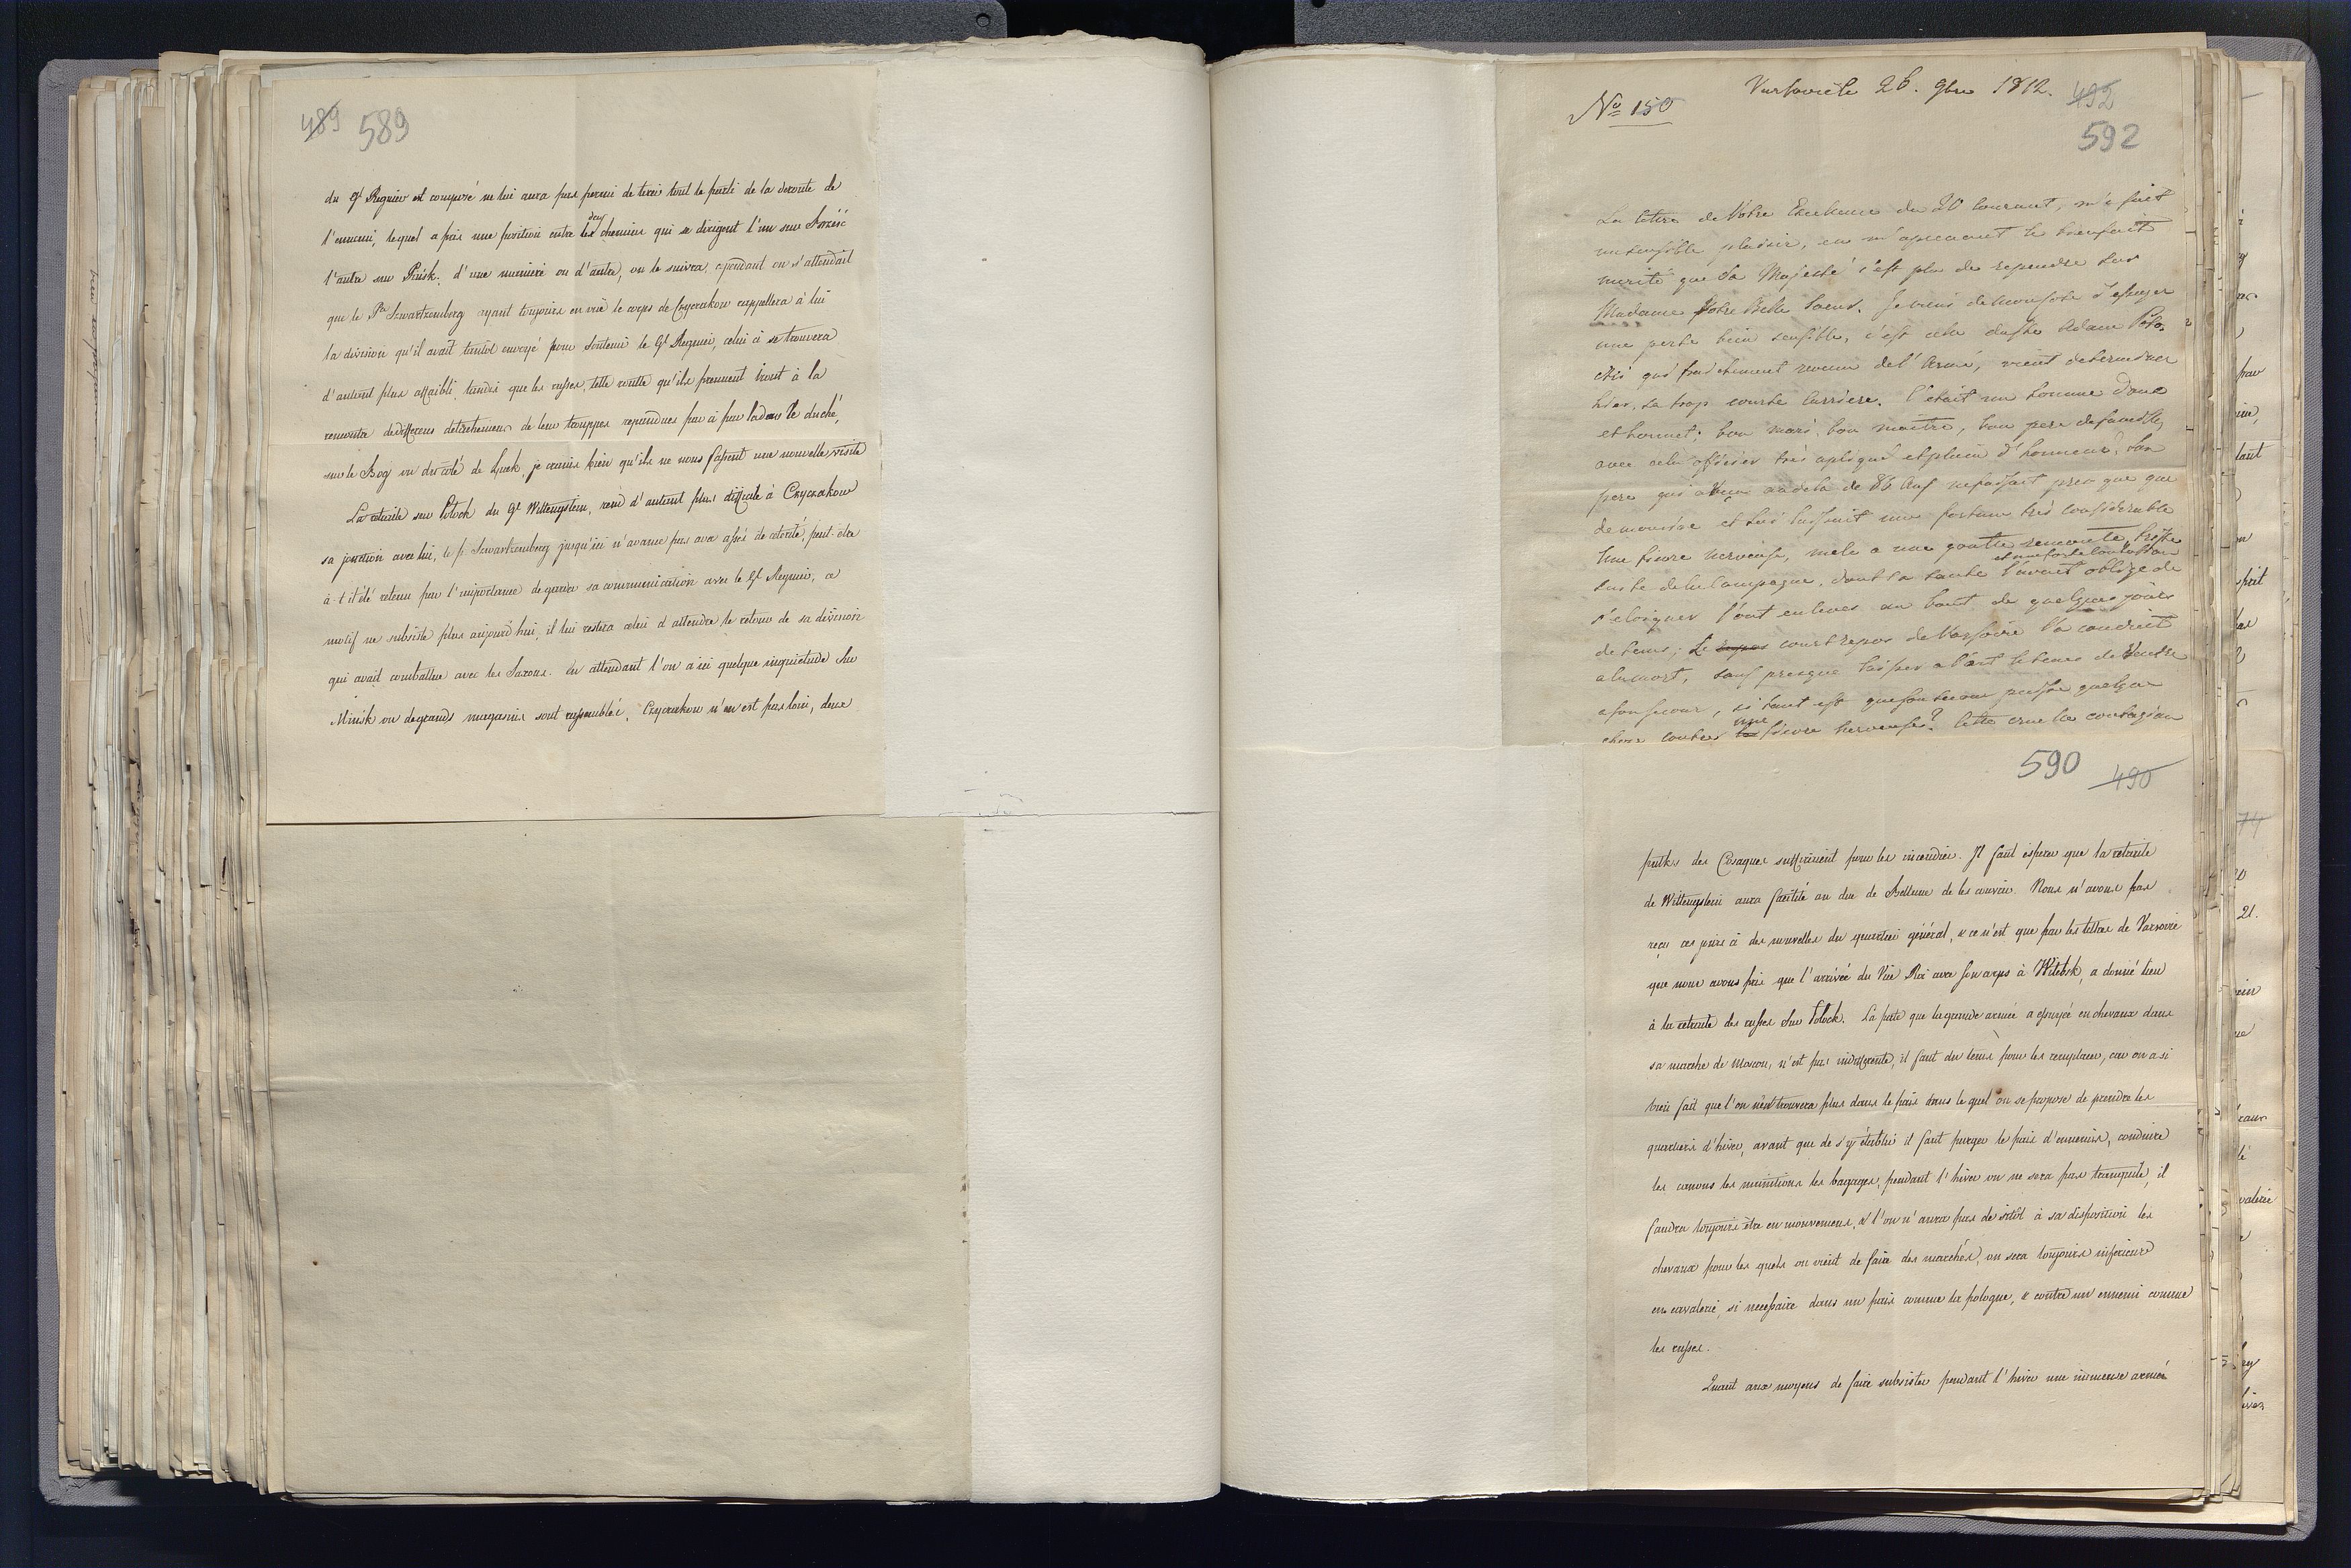 489 589
du Gl Regnier est composé ne lui aura pas permi de tirer tout le parti de la deroute de
l'ennemi, lequel a pris une position entre les deux chemins qui se dirigent l'un sur Brześć
l'autre sur Pinsk. d'une maniere ou d'autre, on le suivra, cependant on s'attendait
que le Pce Szwartzemberg ayant toujours en vue le corps de Czyczakow rappellera à lui
la division qu'il avait tantôt envoyé pour soutenir le Gl Regnier, celui ci se trouvera
d'autant plus affaibli, tandis que les russes, telle route qu'ils prennent iront à la
rencontre de differens detachemens de leur trouppes repandues par ci par la dans le duché,
sur le Bog ou du coté de Łuck, je crains bien qu'ils ne nous fassent une nouvelle visite
La retraite sur Potock du Gl Wittengstein, rend d'autant plus difficile à Czyczakow
sa jonction avec lui, le p. Szwartzemberg jusqu'ici n'avance pas avec assés de celerité, peut-etre
a-t-il été retenu par l'importance de garder sa communication avec le Gl Regnier, ce
motif ne subsiste plus aujourd'hui, il lui restera celui d'attendre le retour de sa division
qui avait combattue avec les Saxons. En attendant l'on a ici quelque inquietude sur
Minsk ou de grands magasins sont rassemblés, Czyczakow n'en est pas loin, deux
Varsovie le 26. 9bre 1812.
No 150
492
592
La lettre de Votre Excellence du 20 courant, m'a fait
un sensible plaisir, en m'aprenant le bienfait
merité que Sa Majesté s'est plu de repandre sur
Madame Votre Belle Soeur. Je viens de mon coté d'essuyer
une perte bien sensible, c'est celle du Cte Adam Poto-
cki qui fraichement revenu de l'Armée, vient de terminer
hier, sa trop courte carriere. C'était un homme doux
et honnet; bon mari, bon maitre, bon pere de famille,
avec cela officier très apliqué et plein d'honneur, son
pere qui a au dela de 86 ans ne faisait presque que
de mourir et lui laissait une fortune très considerable
Une fievre nerveuse, mele a une goutte remontée, triste
et une forte contusion
suite de la Campagne, dont sa santé l'avait obligé de
s'eloigner l'ont enlevés au bout de quelques jours
de tems; Le court repos de Varsovie l'a conduit
a la mort, sans presque laisser a l'art le tems de venir
a son secour, si tant est que son secour puisse quelque
chose contre une fievre nerveuse? Cette cruelle contagion
590 490
pulks des Cosaques suffiraient pour les incendier. Il faut esperer que la retraite
de Wittengstein aura facilité au duc de Bellune de les couvrir. Nous n'avons pas
reçu ces jours ci des nouvelles du quartier général, & ce n'est que par les lettres de Varsovie
que nous avons pris que l'arrivée du Vice Roi avec son corps à Witebsk, a donné lieu
à la retraite des russes sur Polock. La perte que la grande armée a essuyée en chevaux dans
sa marche de Moscou, n'est pas indifferente, il faut du tems pour les remplacer, car on a si
bien fait que l'on n'en trouvera plus dans le pais dans le quel on se propose de prendre les
quartiers d'hiver, avant que de s'y établir il faut purger le pais d'ennemis, conduire
les canons les munitions les bagages, pendant l'hiver on ne sera pas tranquile, il
faudra toujours etre en mouvemens, & l'on n'aura pas de sitôt à sa disposition les
chevaux pour les quels on vient de faire des marchés, on sera toujours inferieure
en cavalerie, si necessaire dans un pais comme la pologne, & contre un ennemi comme
les russes.
Quant aux moyens de faire subsister pendant l'hiver une immense armée